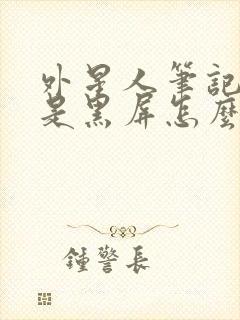 外星人筆記
是黑屏怎麼
鍾警長